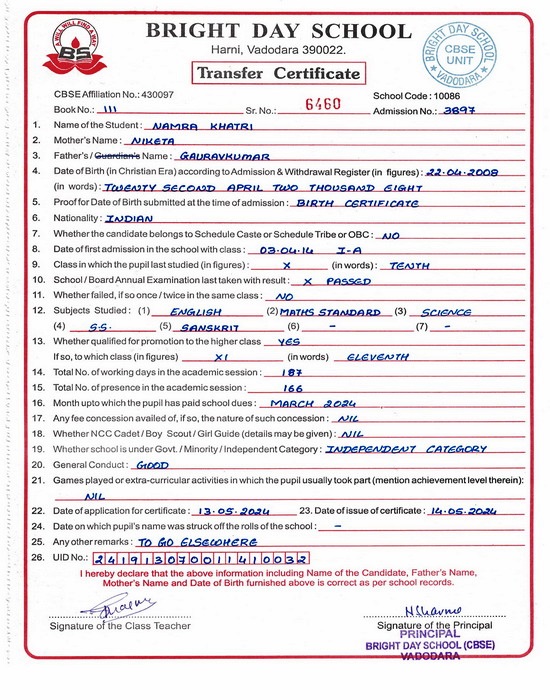 A WILL WILL FIND A WAY
BS
BRIGHT DAY SCHOOL
Harni, Vadodara 390022.
Transfer Certificate
BRIGHT DAY SCHOOL
CBSE
UNIT
VADODARA
CBSE Affiliation No.: 430097 School Code : 10086
Book No.: III Sr. No.: 6460 Admission No.: 3897
1. Name of the Student : NAMRA KHATRI
2. Mother's Name : NIKETA
3. Father's / Guardian's Name : GAURAVKUMAR
4. Date of Birth (in Christian Era) according to Admission & Withdrawal Register (in figures) : 22-04-2008
(in words) : TWENTY SECOND APRIL TWO THOUSAND EIGHT
5. Proof for Date of Birth submitted at the time of admission : BIRTH CERTIFICATE
6. Nationality : INDIAN
7. Whether the candidate belongs to Schedule Caste or Schedule Tribe or OBC : NO
8. Date of first admission in the school with class : 03-04-14 I-A
9. Class in which the pupil last studied (in figures) : X (in words) : TENTH
10. School / Board Annual Examination last taken with result : X PASSED
11. Whether failed, if so once / twice in the same class : NO
12. Subjects Studied : (1) ENGLISH (2) MATHS STANDARD (3) SCIENCE
(4) S.S. (5) SANSKRIT (6) - (7) -
13. Whether qualified for promotion to the higher class YES
If so, to which class (in figures) XI (in words) ELEVENTH
14. Total No. of working days in the academic session : 187
15. Total No. of presence in the academic session : 166
16. Month upto which the pupil has paid school dues : MARCH 2024
17. Any fee concession availed of, if so, the nature of such concession : NIL
18. Whether NCC Cadet / Boy Scout / Girl Guide (details may be given) : NIL
19. Whether school is under Govt. / Minority / Independent Category : INDEPENDENT CATEGORY
20. General Conduct : GOOD
21. Games played or extra-curricular activities in which the pupil usually took part (mention achievement level therein):
NIL
22. Date of application for certificate : 13-05-2024 23. Date of issue of certificate : 14-05-2024
24. Date on which pupil's name was struck off the rolls of the school : -
25. Any other remarks : TO GO ELSEWHERE
26. UID No.: 241913070011410032
I hereby declare that the above information including Name of the Candidate, Father's Name,
Mother's Name and Date of Birth furnished above is correct as per school records.
Signature of the Class Teacher Signature of the Principal
PRINCIPAL
BRIGHT DAY SCHOOL (CBSE)
VADODARA